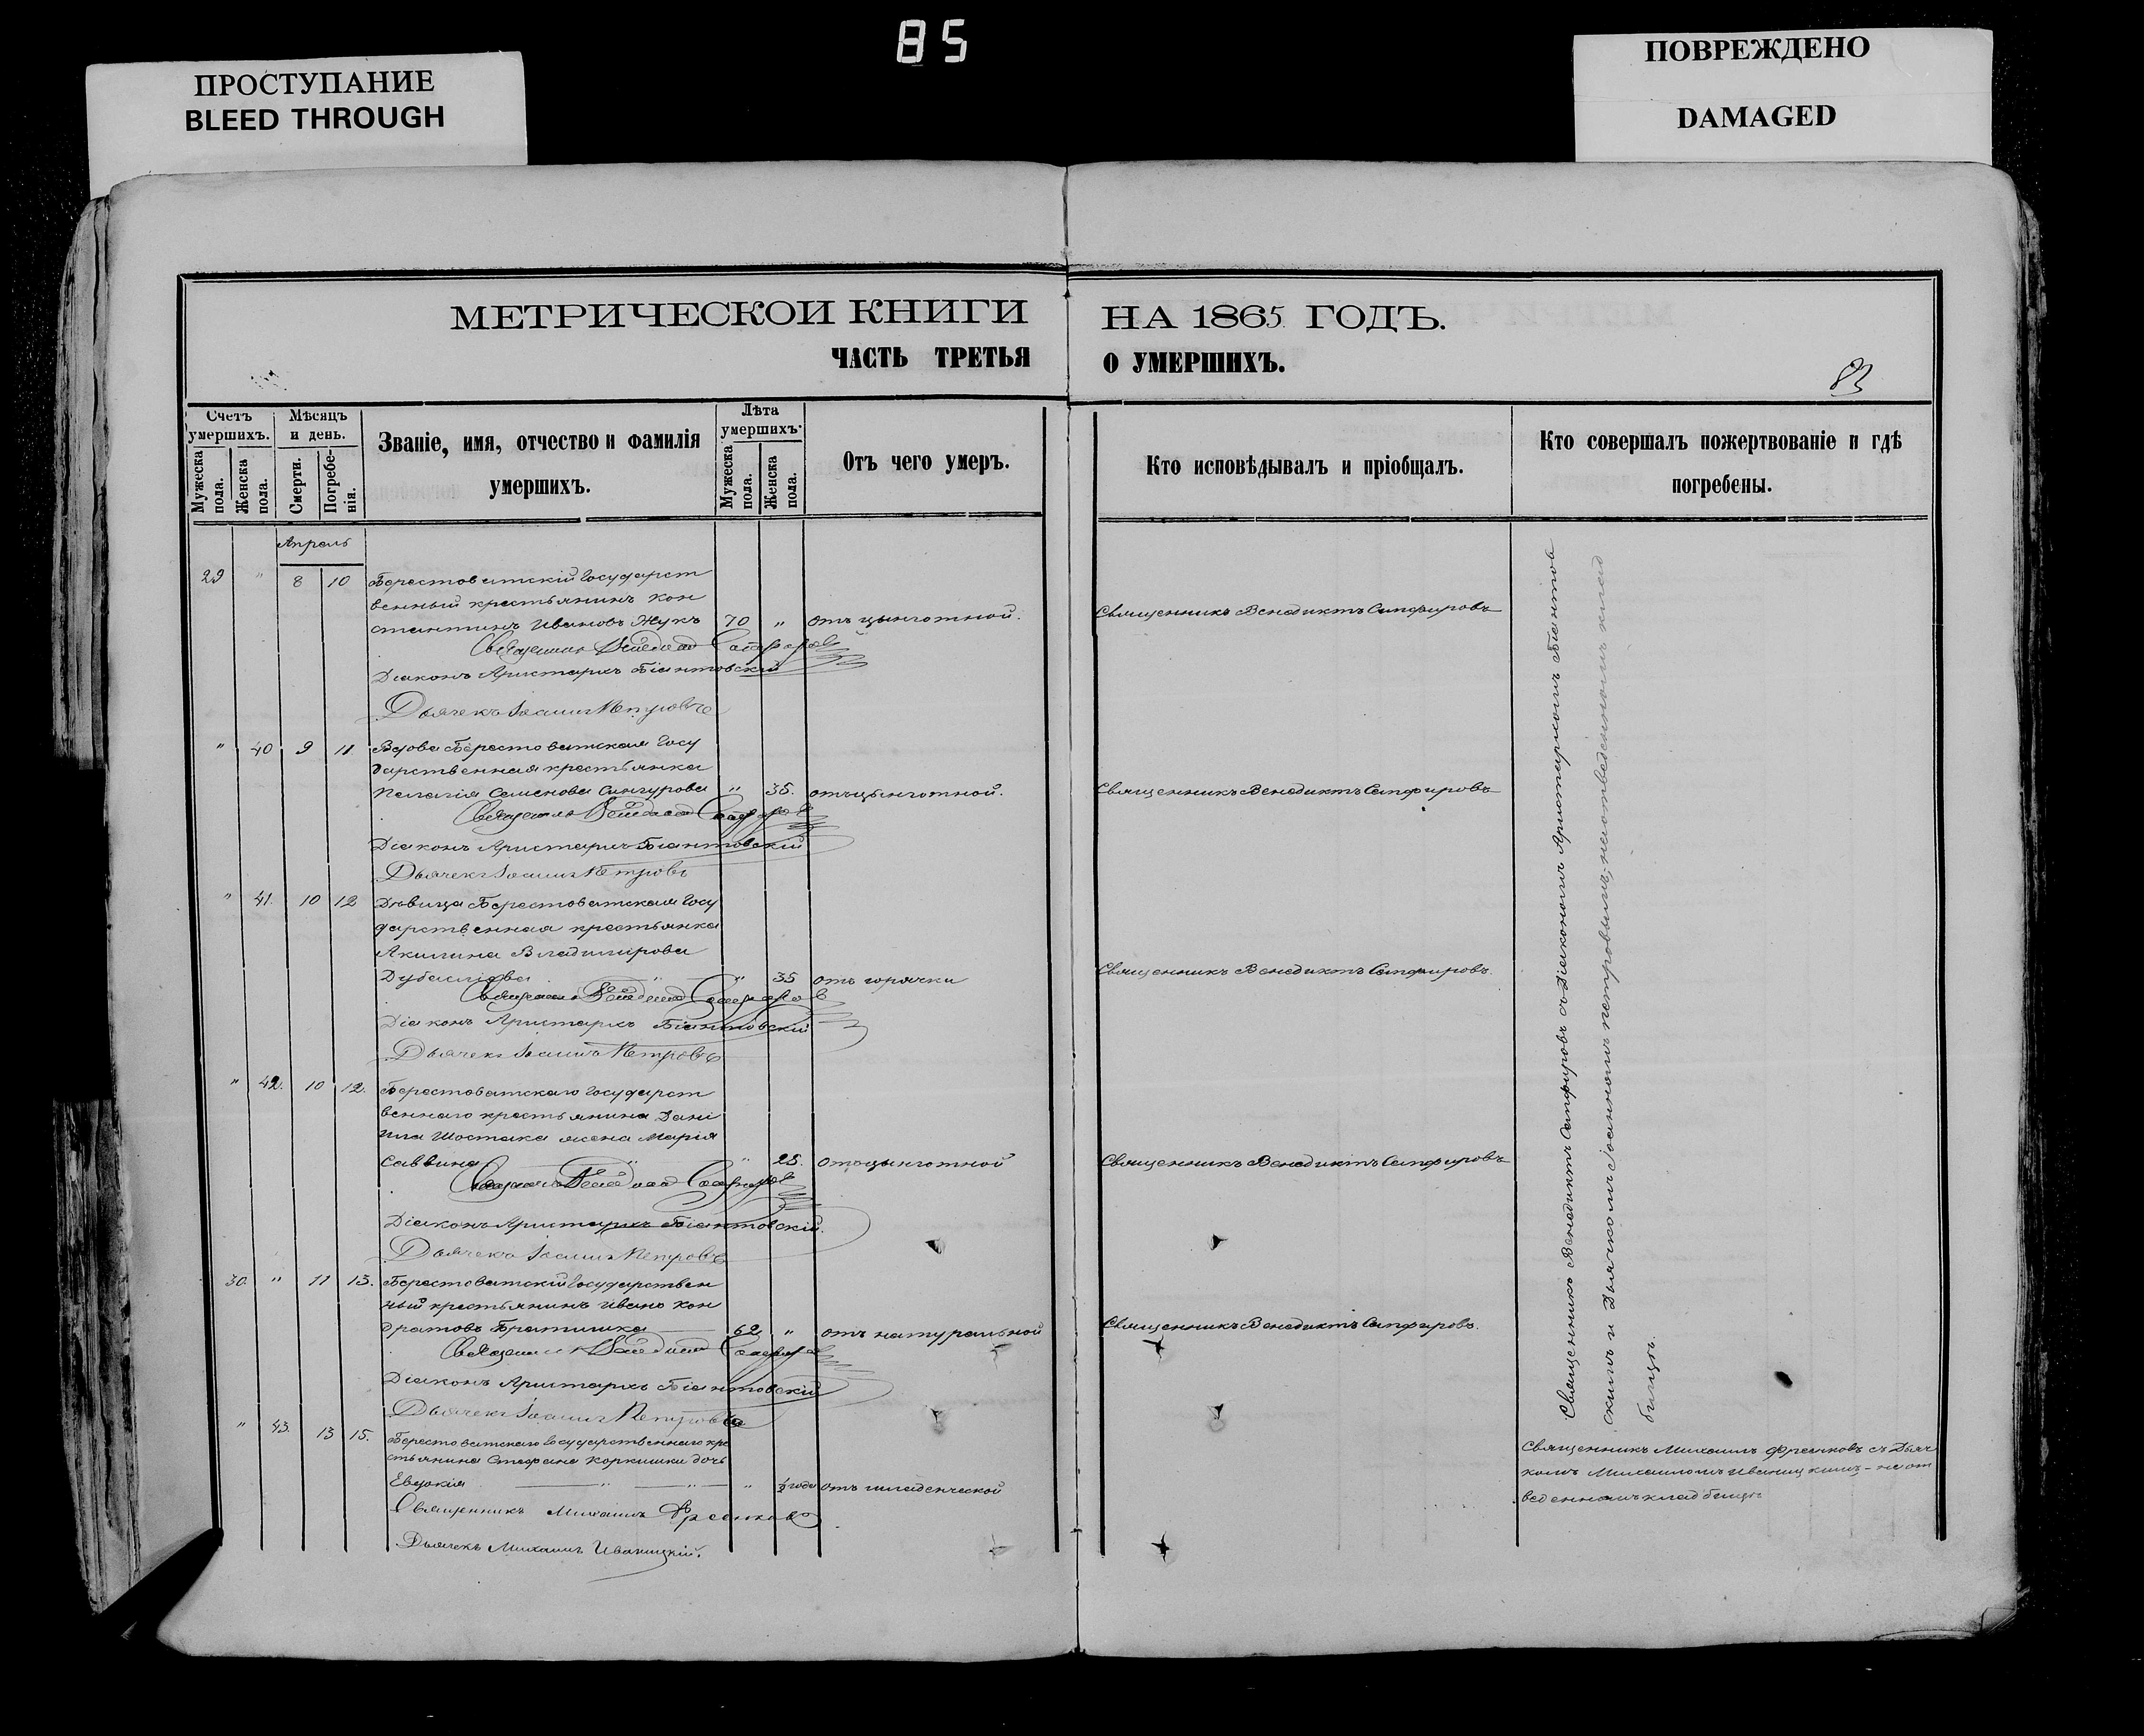 85
ПРОСТУПАНИЕ
BLEED THROUGH
ПОВРЕЖДЕНО
DAMAGED
МЕТРИЧЕСКОИ КНИГИ НА 1865 ГОДЪ.
ЧАСТЬ ТРЕТЬЯ О УМЕРШИХЪ.
83
Счетъ умершихъ.
Мужеска пола.
Женска пола.
Мѣсяцъ и день.
Смерти.
Погребенія.
Званіе, имя, отчество и фамилія
умершихъ.
Лѣта умершихъ.
Мужеска пола.
Женска пола.
Отъ чего умеръ.
Кто исповѣдывалъ и пріобщалъ.
Кто совершалъ пожертвованіе и гдѣ
погребены.
Апрель
29 " 8 10 Берестоватскій Государст
венный крестьянинъ Кон
стантинъ Ивановъ Жукъ 70 " отъ цынготной. Священникъ Венедиктъ Сапфировъ
Священникъ Венедиктъ Сапфировъ
Діаконъ Аристархъ Біантовскій
Дьячекъ Іоаннъ Петровъ
" 40 9 11 Вдова Берестоватская Госу
дарственная крестьянка
Пелагія Семенова Сингурова " 35. отъ цынготной. Священникъ Венедиктъ Сапфировъ
Священникъ Венедиктъ Сапфировъ
Діаконъ Аристархъ Біантовскій
Дьячекъ Іоаннъ Петровъ
" 41. 10 12 Дѣвица Берестоватская Госу
дарственная крестьянка
Акилина Владимірова
" 35 отъ горячки Священникъ Венедиктъ Сапфировъ.
Священникъ Венедиктъ Сапфировъ
Діаконъ Аристархъ Біантовскій
Дьячекъ Іоаннъ Петровъ
" 42. 10 12. Берестоватскаго Государст
веннаго крестьянина Дані
ила Шостака жена Марія
Саввина " " 25. отъ цынготной Священникъ Венедиктъ Сапфировъ
Священникъ Венедиктъ Сапфировъ
Діаконъ Аристархъ Біантовскій.
Дьячекъ Іоаннъ Петровъ
30. " 11 13. Берестоватскій Государствен
ный крестьянинъ Иванъ Кон
дратовъ Братишка 62 " отъ натуральной Священникъ Венедиктъ Сапфировъ.
Священникъ Венедиктъ Сапфировъ
Діаконъ Аристархъ Біантовскій
Дьячекъ Іоаннъ Петровъ
" 43. 13 15. Берестоватскаго Государственнаго кре
стьянина Стефана Коркишки дочь
Евдокія " " " ½ года отъ младенческой
Священникъ Михаилъ
Дьячекъ Михаилъ Иваницкій.
Священникъ Венедиктъ Сапфировъ съ Діакономъ Аристархомъ Біантов
скимъ и Дьячкомъ Іоанномъ Петровымъ, на отведенномъ клад
бищѣ.
Священникъ Михаилъ съ Дьяч
комъ Михаиломъ Иваницкимъ, - на от
веденномъ кладбищѣ